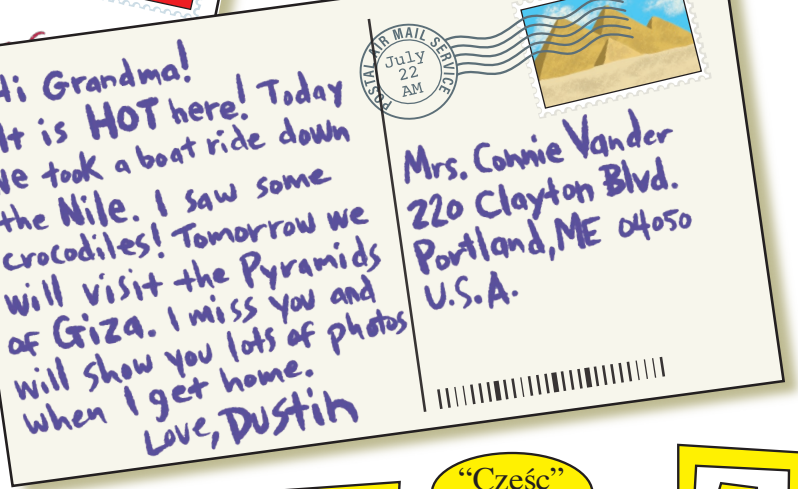 Hi Grandma!
It is HOT here! Today
We took a boat ride down
the Nile. I saw some
crocodiles! Tomorrow we
will visit the Pyramids
of Giza. I miss you and
will show you lots of photos
when I get home.
Love, Dustin
POSTAL AIR MAIL SERVICE
July
22
AM
Mrs. Connie Vander
220 Clayton Blvd.
Portland, ME 04050
U.S.A.
“Cześc”